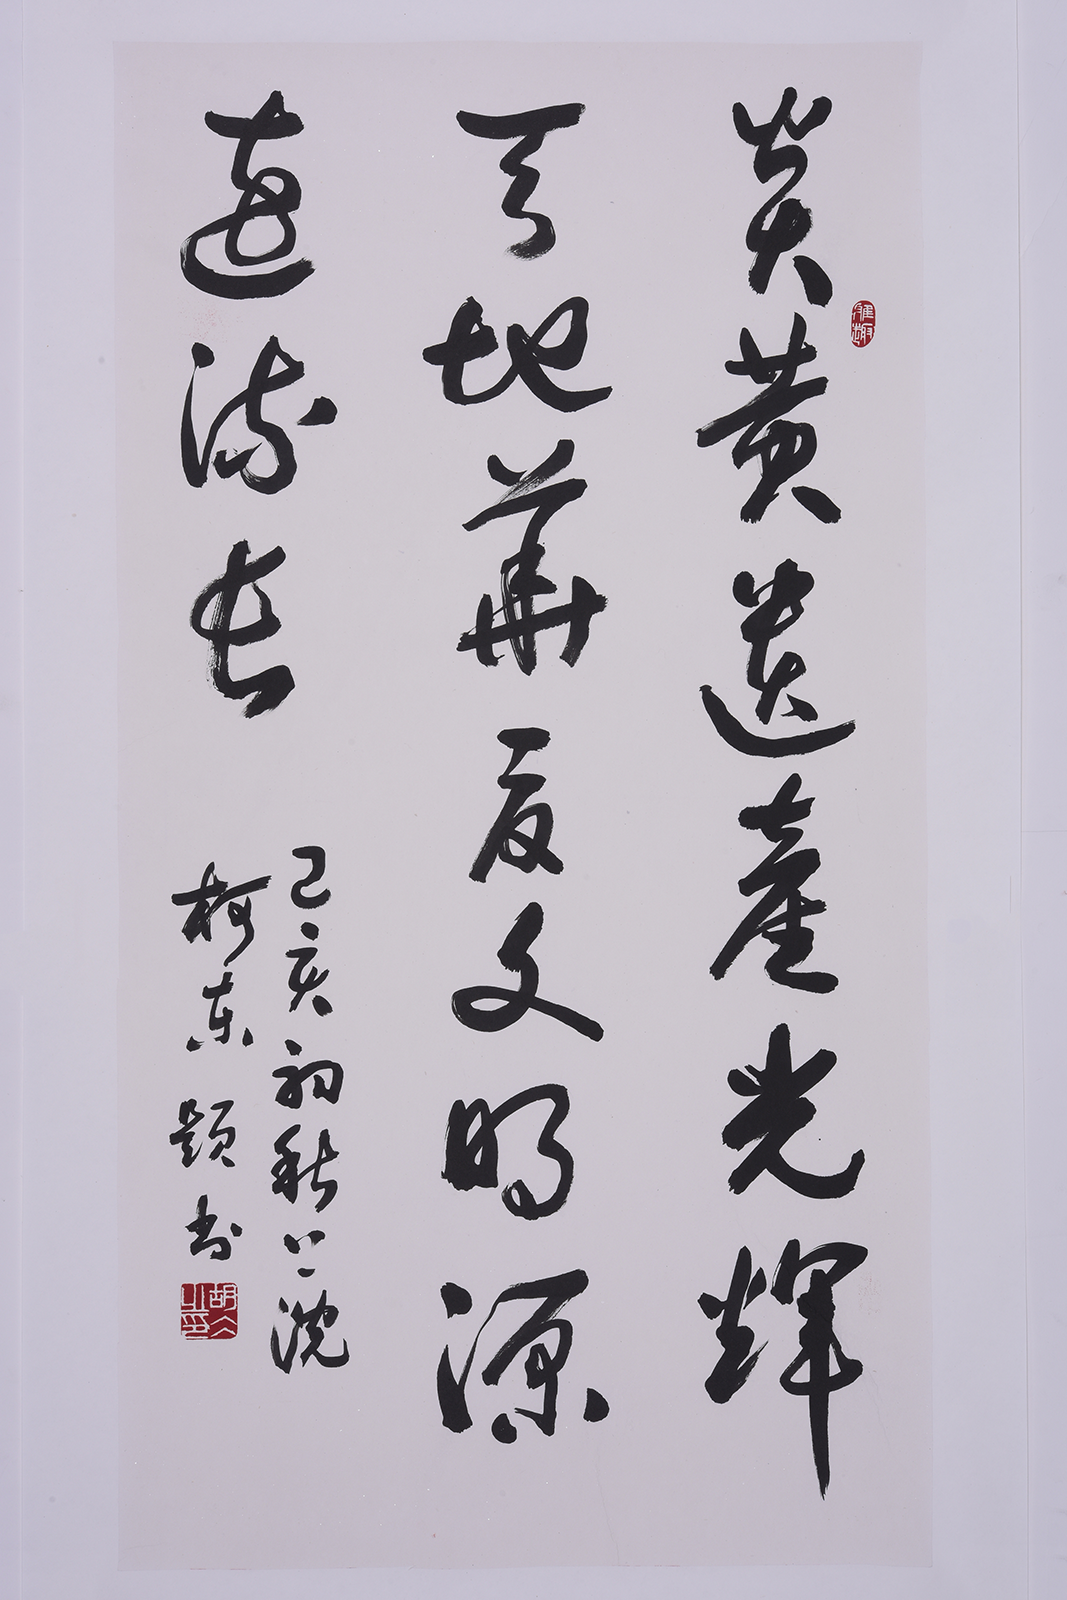 炎黄遗产光辉
天地华夏文明源
远流长
己亥初秋上浣
柯东题书